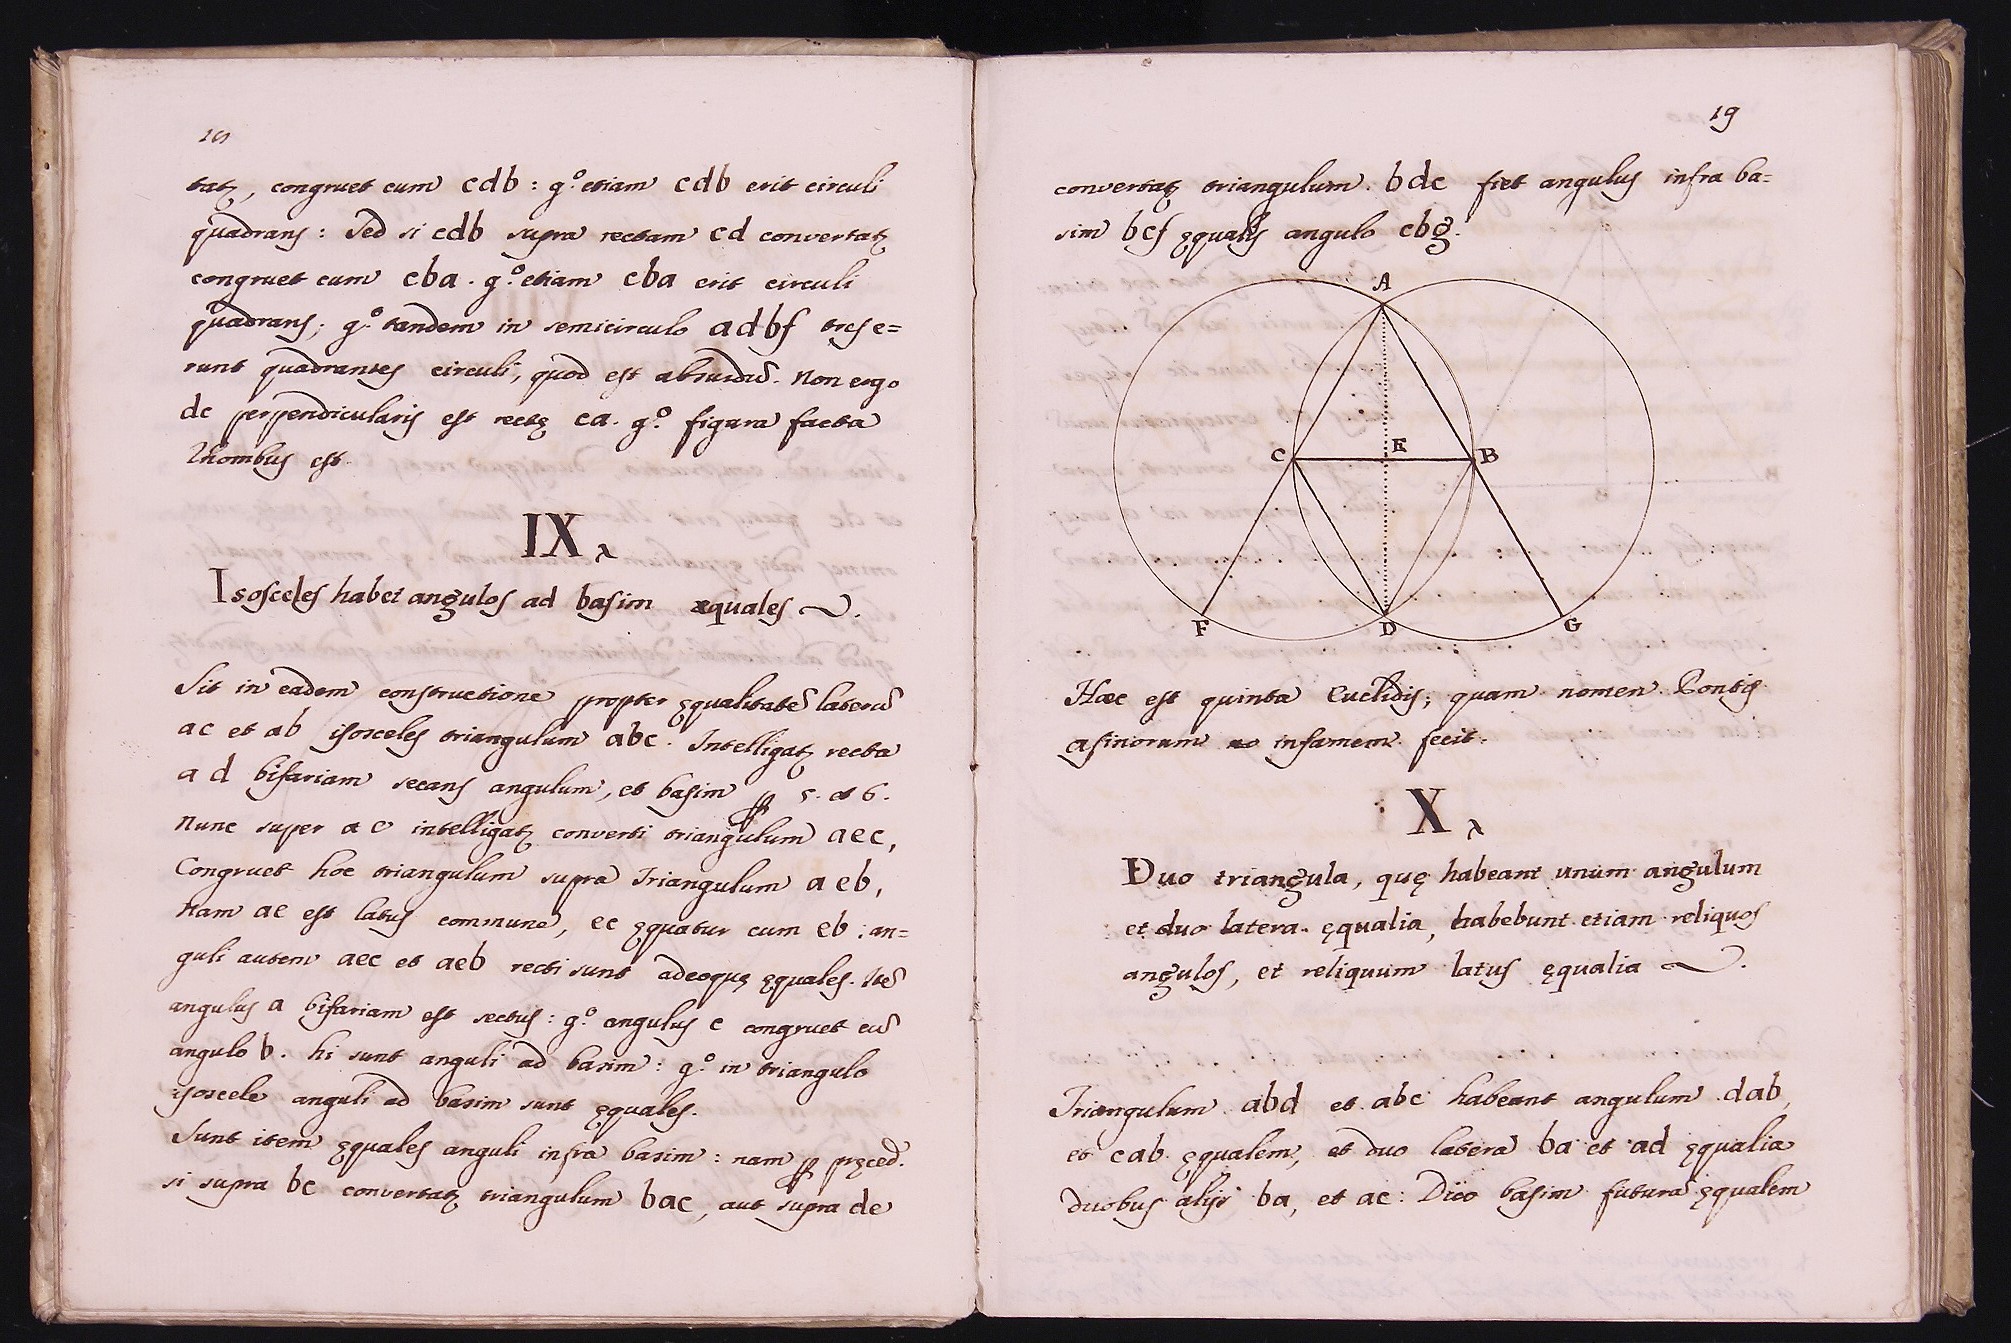 18
tatȝ, congruet cum cdb : g.º etiam cdb erit circuli
quadrans : Sed si cdb supra rectam cd convertatȝ
congruet cum cba . g.º etiam cba erit circuli
quadrans ; g.º tandem in semicirculo adbf tres e=
runt quadrantes circuli, quod est absurdũ. Non ergo
dc perpendicularis est rectę ca. g.º figura facta
Rhombus est.
IX
Isosceles habet angulos ad basim æquales
Sit in eadem constructione propter ęqualitatẽ laterũ
ac et ab isosceles triangulum abc. Intelligatȝ recta
ad bifariam secans angulum, et basim ꝑ 5. et 6.
Nunc super ae intelligatȝ converti triangulum aec,
Congruet hoc triangulum supra Triangulum aeb,
Nam ae est latus commune, ec ęquatur cum eb : an=
guli autem aec et aeb recti sunt adeoque ęquales. Itẽ
angulus a bifariam est sectus : g.º angulus c congruet cũ
angulo b. hi sunt anguli ad basim : g.º in triangulo
isoscele anguli ad basim sunt ęquales.
Sunt item ęquales anguli infra basim : nam ꝑ pręced.
si supra bc convertatȝ triangulum bac, aut supra de
19
convertatȝ triangulum bdc fiet angulus infra ba=
sim bcf ęqualis angulo cbg.
A
C E B
F D G
Hæc est quinta Euclidis, quam nomen Pontis
asinorum infamem fecit.
X
Duo triangula, quę habeant unum angulum
et duo latera ęqualia, habebunt etiam reliquos
angulos, et reliquum latus ęqualia
Triangulum abd et abc habeant angulum dab,
et cab ęqualem, et duo latera ba et ad ęqualia
duobus alijs ba, et ac : Dico basim futurã ęqualem